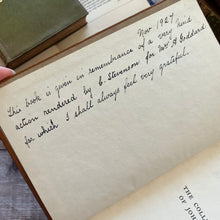 Nov 1927
This book is given in remembrance of a very kind
action rendered by C. Stevenson for Mr. H Goddard
for which I shall always feel very grateful.
THE COLL
OF JOH